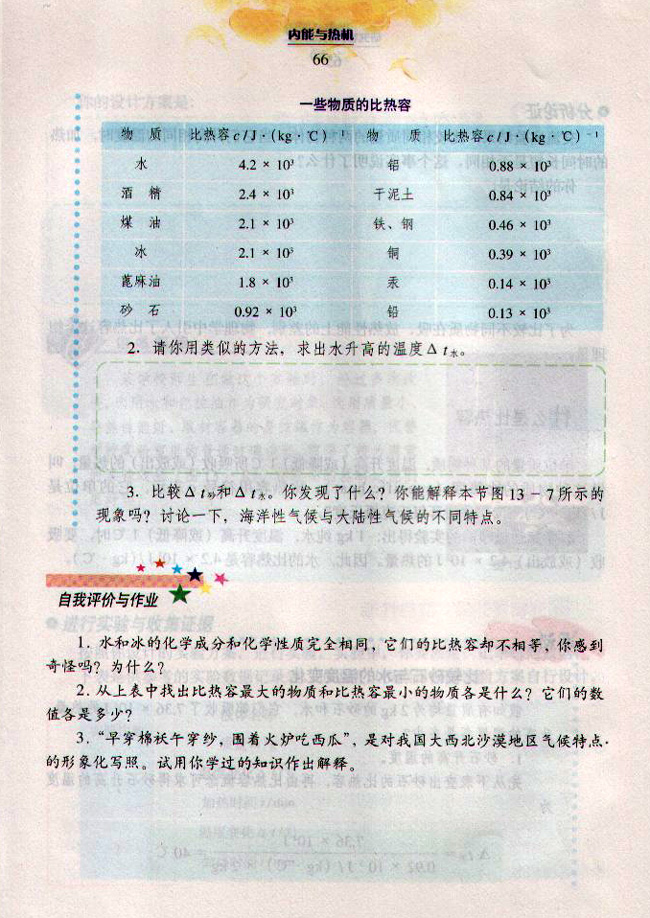 内能与热机
66
一些物质的比热容
物 质 比热容c/J·(kg·℃)⁻¹ 物 质 比热容c/J·(kg·℃)⁻¹
水 4.2 × 10³ 铝 0.88 × 10³
酒 精 2.4 × 10³ 干泥土 0.84 × 10³
煤 油 2.1 × 10³ 铁、钢 0.46 × 10³
冰 2.1 × 10³ 铜 0.39 × 10³
蓖麻油 1.8 × 10³ 汞 0.14 × 10³
砂 石 0.92 × 10³ 铅 0.13 × 10³
2. 请你用类似的方法，求出水升高的温度Δt水。
3. 比较Δt砂和Δt水。你发现了什么？你能解释本节图13－7所示的
现象吗？讨论一下，海洋性气候与大陆性气候的不同特点。
自我评价与作业
1. 水和冰的化学成分和化学性质完全相同，它们的比热容却不相等，你感到
奇怪吗？为什么？
2. 从上表中找出比热容最大的物质和比热容最小的物质各是什么？它们的数
值各是多少？
3. “早穿棉袄午穿纱，围着火炉吃西瓜”，是对我国大西北沙漠地区气候特点
的形象化写照。试用你学过的知识作出解释。